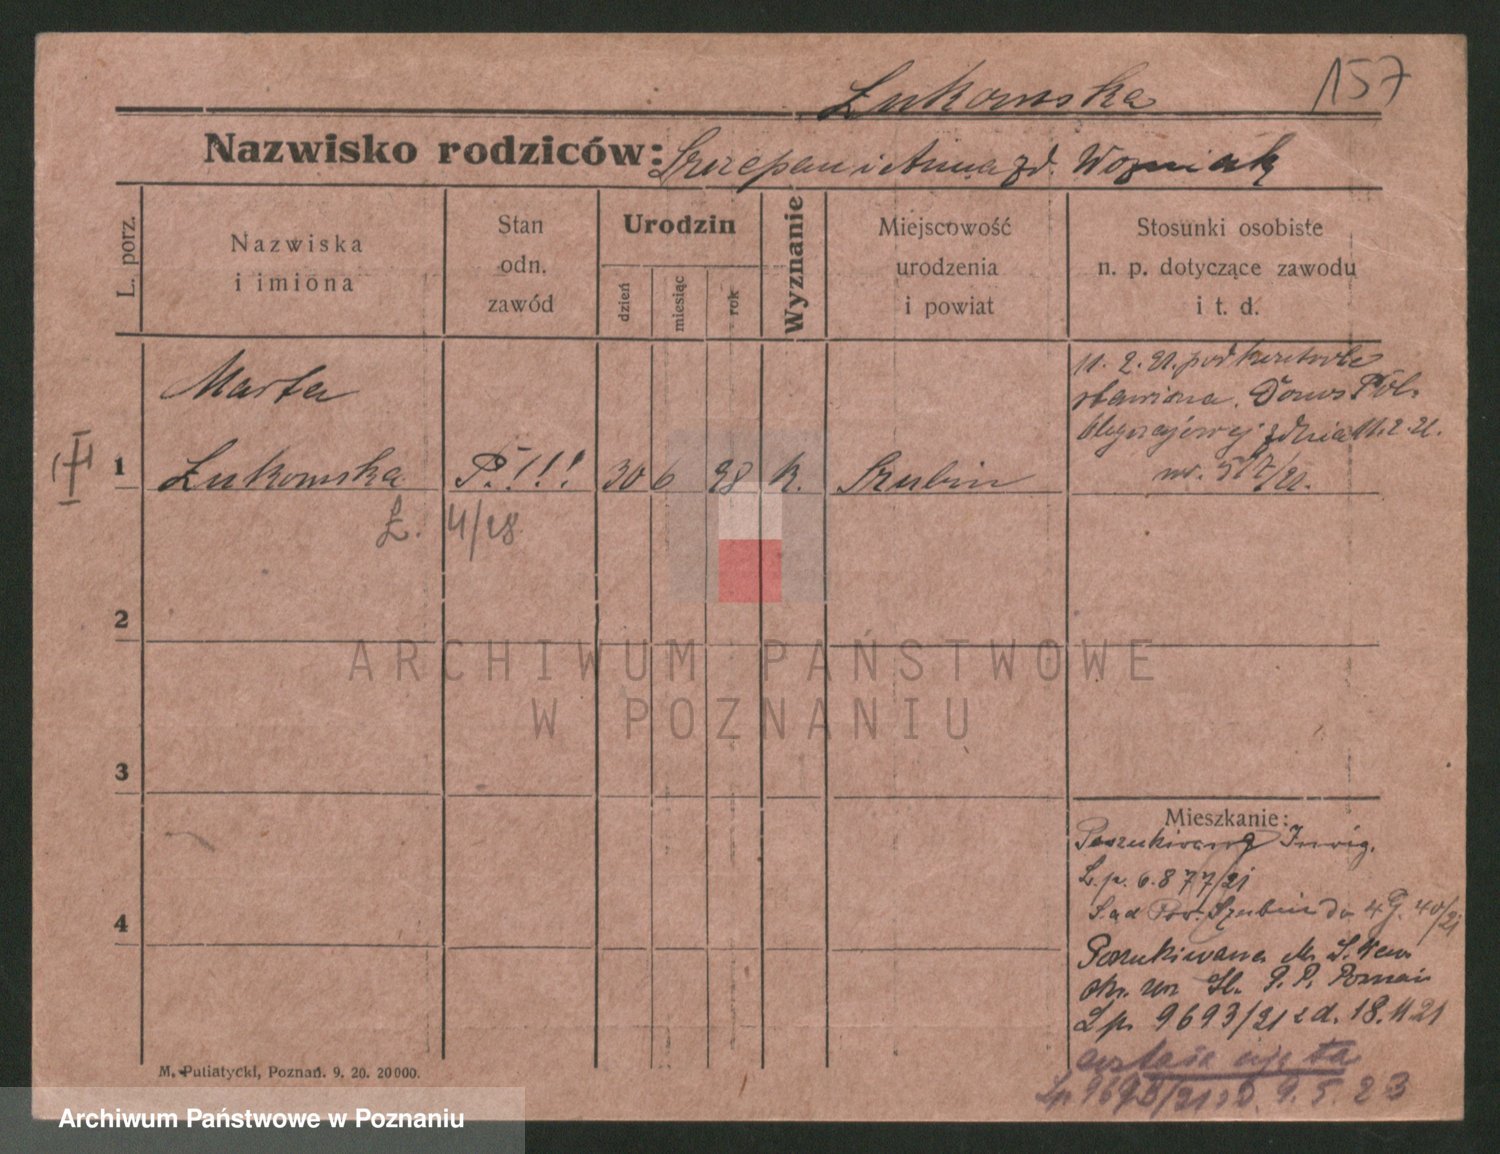 Łukowska
157
Nazwisko rodziców: Szczepan i Anna zd. Wozniak
L. porz.
Nazwiska
i imiona
Stan
odn.
zawód
Urodzin
dzień
miesiąc
rok
Wyznanie
Miejscowość
urodzenia
i powiat
Stosunki osobiste
n. p. dotyczące zawodu
i t. d.
Marta
11. 2. 21. pod kontrolę
stawiona. Donos Pol.
Obyczajowej z dnia 11. 2. 21.
nr. 517/21.
III
1 Łukowska P.!!! 30 6 98 k. Szubin
Ł. 4/28
2
3
4
ARCHIWUM PAŃSTWOWE
W POZNANIU
Mieszkanie:
Poszukiwana Inwig.
L.p. 6.877/21
Sąd Pow. Szubin do 4 G. 40/21
Poszukiwana
okr. Gł. P.P. Poznań
Lp. 9693/21 z d. 18.11 21
została ujęta
Lp. 9693/21 z d. 9. 5. 23
M. Putiatycki, Poznań. 9. 20. 20000.
Archiwum Państwowe w Poznaniu